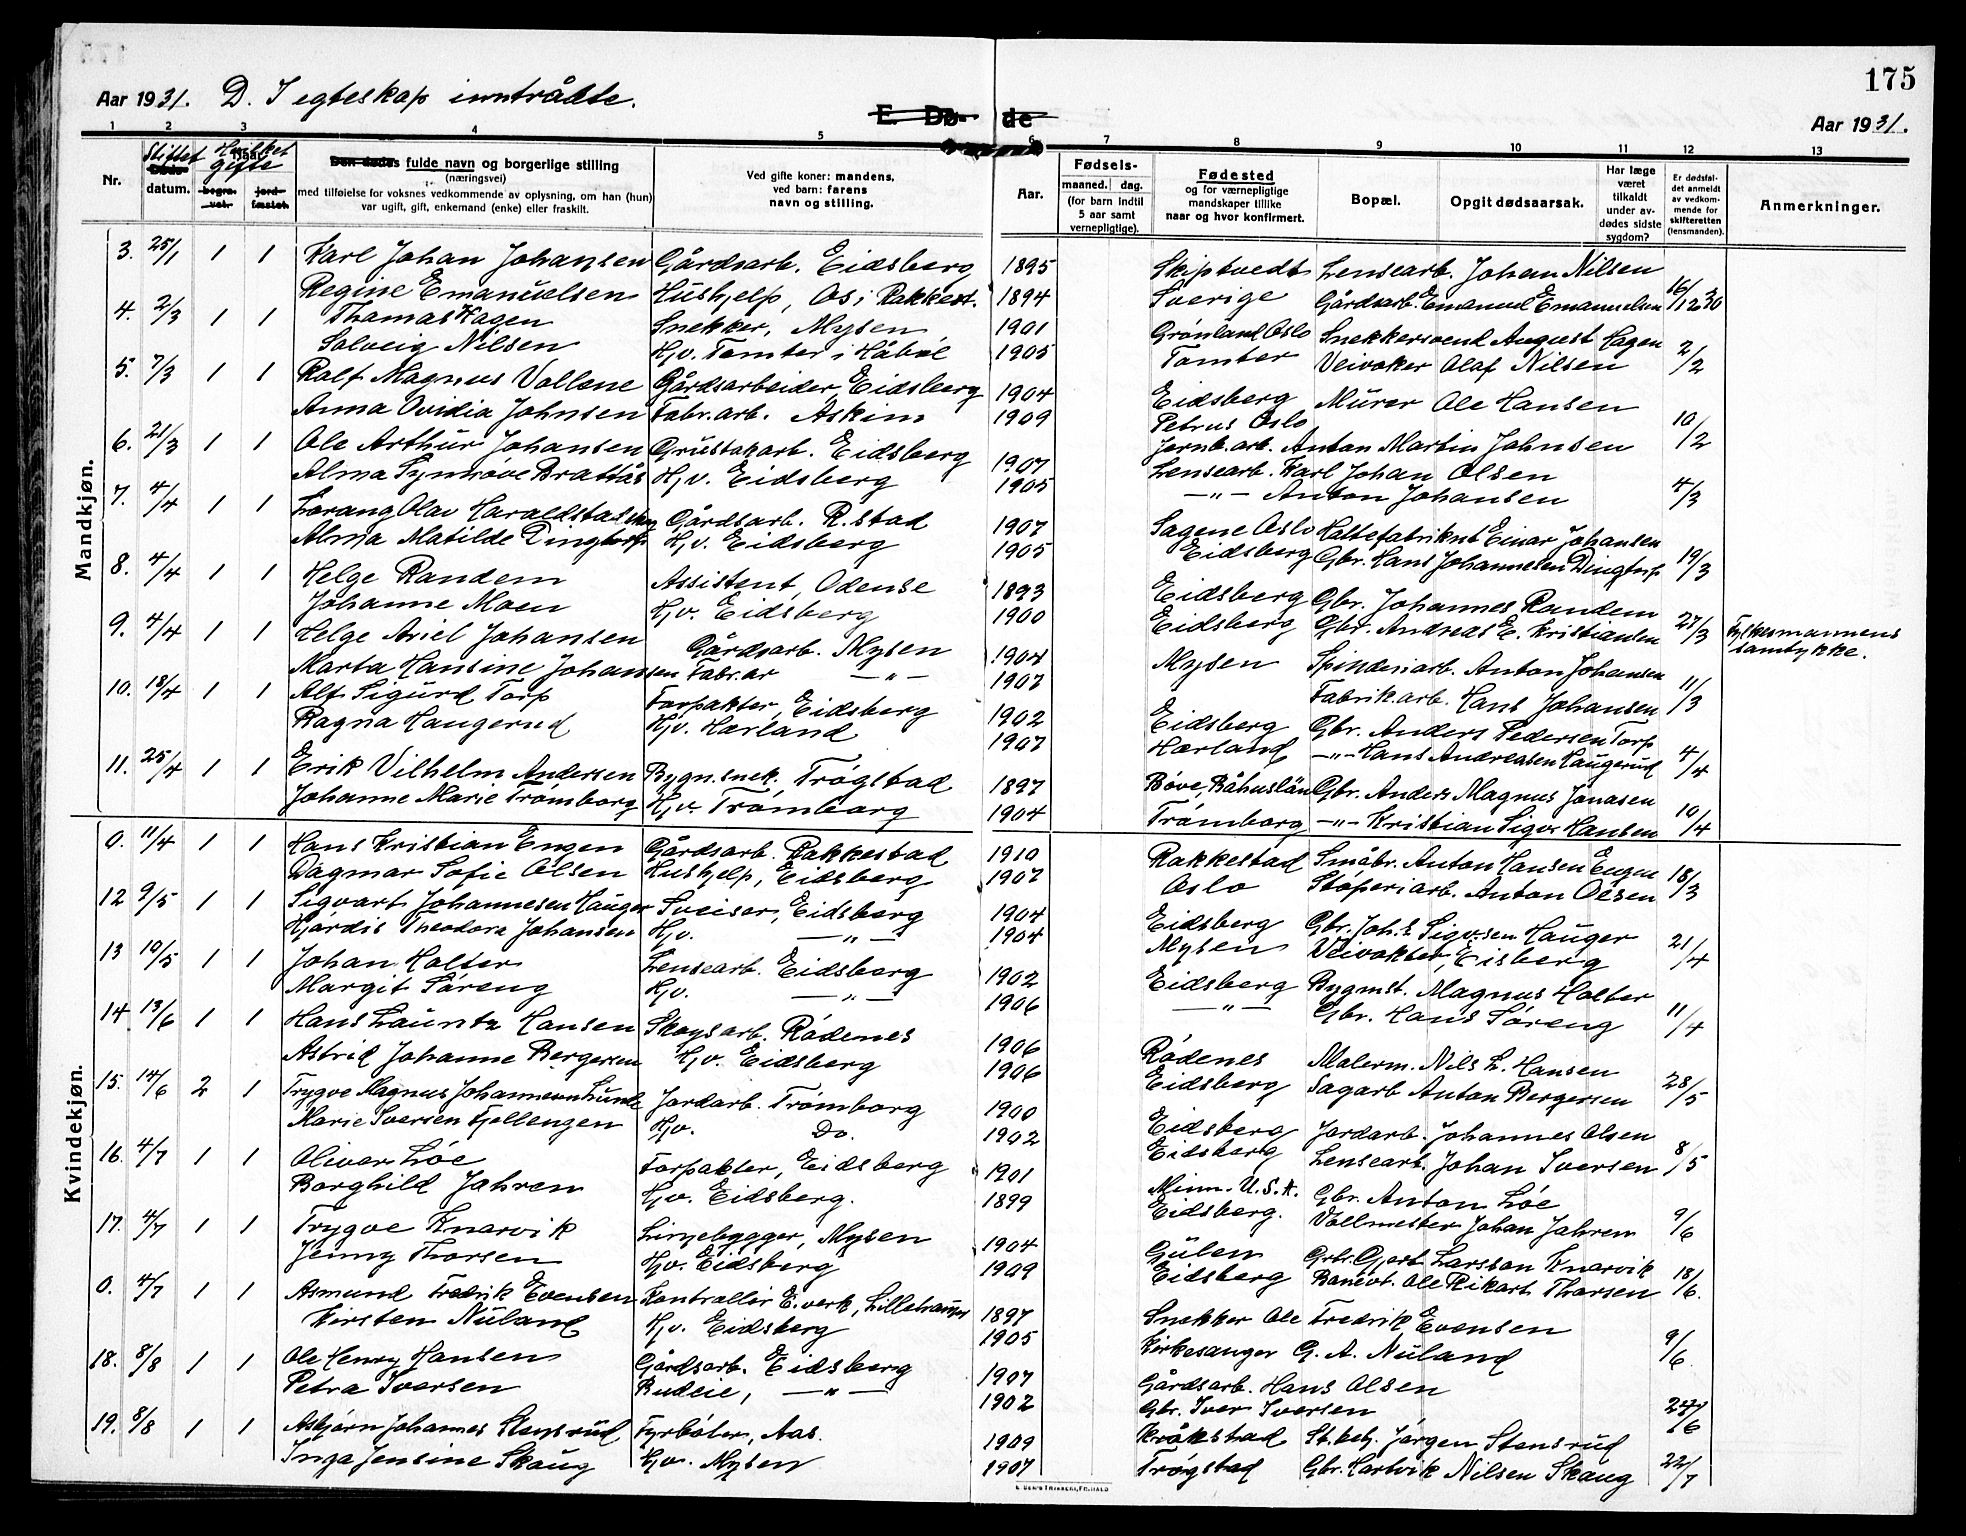 175
Aar 1931. D. I egteskap inntrådte.
E. Dø- de
Aar 1931.
1 2 3 4 5 6 7 8 9 10 11 12 13
Nr.
Stiftet Døds- datum.
Hvilket Naar gifte
begra- vet. jord- fæstet.
Den dødes fulde navn og borgerlige stilling
(næringsvei)
med tilføielse for voksnes vedkommende av oplysning, om han (hun)
var ugift, gift, enkemand (enke) eller fraskilt.
Ved gifte koner: mandens,
ved barn: farens
navn og stilling.
Aar.
Fødsels-
maaned. dag.
(for barn indtil
5 aar samt
vernepligtige).
Fødested
og for værnepligtige
mandskaper tillike
naar og hvor konfirmert.
Bopæl.
Opgit dødsaarsak.
Har læge
været
tilkaldt
under av-
dødes sidste
sygdom?
Er dødsfal-
det anmeldt
av vedkom-
mende for
skifteretten
(lensmanden).
Anmerkninger.
Mandkjøn.
3. 25/1 1 1 Karl Johan Johansen Gårdsarb. Eidsberg 1895 Skiptvedt Lensearb. Johan Nilsen
Regine Emanuelsen Hushjelp, Os i Rakkest. 1894 Sverige Gårdsarb. Emanuel Emanuelsen 16/12 30
4. 2/3 1 1 Thomas Hagen Snekker, Mysen 1901 Grønland Oslo Snekkersvend August Hagen
Solveig Nilsen Hjv. Tomter i Håbøl 1905 Tomter Veivokter Olaf Nilsen 2/2
5. 7/3 1 1 Rolf Magnus Vollene Gårdsarbeider, Eidsberg 1904 Eidsberg Murer Ole Hansen
Anna Ovidia Johnsen Fabr.arb. Askim 1909 Petrus Oslo Jernb.arb. Anton Martin Johnsen 10/2
6. 21/3 1 1 Ole Arthur Johansen Grustakarb. Eidsberg 1907 Lensearb. Karl Johan Olsen
Alma Synnøve Brattås Hjv. Eidsberg 1905 —"— Anton Johansen 4/3
7. 4/4 1 1 Lorang Olav Haraldstad Gårdsarb. R.stad 1907 Sagene Oslo Hattefabriknt Einar Johansen
Alma Matilde Dingtorp Hjv. Eidsberg 1905 Eidsberg Gbr. Hans Johannesen Dingtorp 19/3
8. 4/4 1 1 Helge Randem Assistent, Odense 1893 Eidsberg Gbr. Johannes Randem
Johanne Moen Hjv. Eidsberg 1900 Eidsberg Gbr. Andreas E. Kristiansen 27/3 Fylkesmannens samtykke.
9. 4/4 1 1 Helge Ariel Johansen Gårdsarb. Mysen 1904 Mysen Spinderiarb. Anton Johansen
Marta Hansine Johansen Fabr.ar —"— 1907 Fabrik.arb. Hans Johansen 11/3
10. 18/4 1 1 Alf Sigurd Torp Forpakter, Eidsberg 1902 Eidsberg Gbr. Anders Pedersen Torp
Ragna Haugerud Hjv. Hærland 1907 Hærland —"— Hans Andreasen Haugerud 4/4
11. 25/4 1 1 Erik Vilhelm Andersen Bygn.snek. Trøgstad 1897 Bove, Båhuslän Gbr. Anders Magnus Jonasen
Johanne Marie Trømborg Hjv. Trømborg 1904 Trømborg —"— Kristian Sigv. Hansen 10/4
Kvindekjøn.
0. 11/4 1 1 Hans Kristian Engen Gårdsarb. Rakkestad 1910 Rakkestad Småbr. Anton Hansen Engen
Dagmar Sofie Olsen Hushjelp, Eidsberg 1907 Oslo Støperiarb. Anton Olsen 18/3
12 9/5 1 1 Sigvart Johannesen Hauger Sveiser, Eidsberg 1904 Eidsberg Gbr. Joh.s Sigv.sen Hauger
Hjørdis Theodora Johansen Hjv. —"— 1904 Mysen Veivokter, Eisberg 21/4
13 10/5 1 1 Johan Holter Lensearb. Eidsberg 1902 Eidsberg Bygmst. Magnus Holter
Margit Søreng Hjv. —"— 1906 —"— Gbr. Hans Søreng 11/4
14. 13/6 1 1 Hans Lauritz Hansen Skogsarb. Rødenes 1906 Rødenes Malerm. Nils L. Hansen
Astrid Johanne Bergersen Hjv. Eidsberg 1906 Eidsberg Sagarb Anton Bergersen 28/5
15. 14/6 2 1 Trygve Magnus Johannesen Lunde Jordarb. Trømborg 1900 Eidsberg Jordarb. Johannes Olsen
Marie Iversen Fjellengen Hjv. Do. 1902 Eidsberg Lensearb. Johan Iversen 8/5
16. 4/7 1 1 Olivar Løe Forpakter, Eidsberg 1901 Minn. U.S.A. Gbr. Anton Løe
Borghild Jahren Hjv. Eidsberg. 1899 Eidsberg. Vollmester Johan Jahren 9/6
17. 4/7 1 1 Trygve Knarvik Linjebygger, Mysen 1904 Gulen Grbr. Gjert Larsson Knarvik
Jenny Thorsen Hjv. Eidsberg 1909 Eidsberg Banevt. Ole Rikart Thorsen 18/6.
0. 4/7 1 1 Asmund Fredrik Evensen Kontrollør E.verk, Lillehammer 1897 Snekker Ole Fredrik Evensen
Kirsten Nuland Hjv. Eidsberg 1905 Kirkesanger G. A. Nuland 9/6.
18. 8/8 1 1 Ole Henry Hansen Gårdsarb. Eidsberg 1907 Gårdsarb. Hans Olsen
Petra Iversen Budeie, —"— 1902 Gbr. Iver Iversen 27/6
19. 8/8 1 1 Asbjørn Johannes Stensrud Fyrbøter, Aas. 1909 Kråkstad St.betj. Jørgen Stensrud
Inga Jensine Skaug Hjv. Mysen 1907 Trøgstad Gbr. Hartvik Nilsen Skaug 22/7